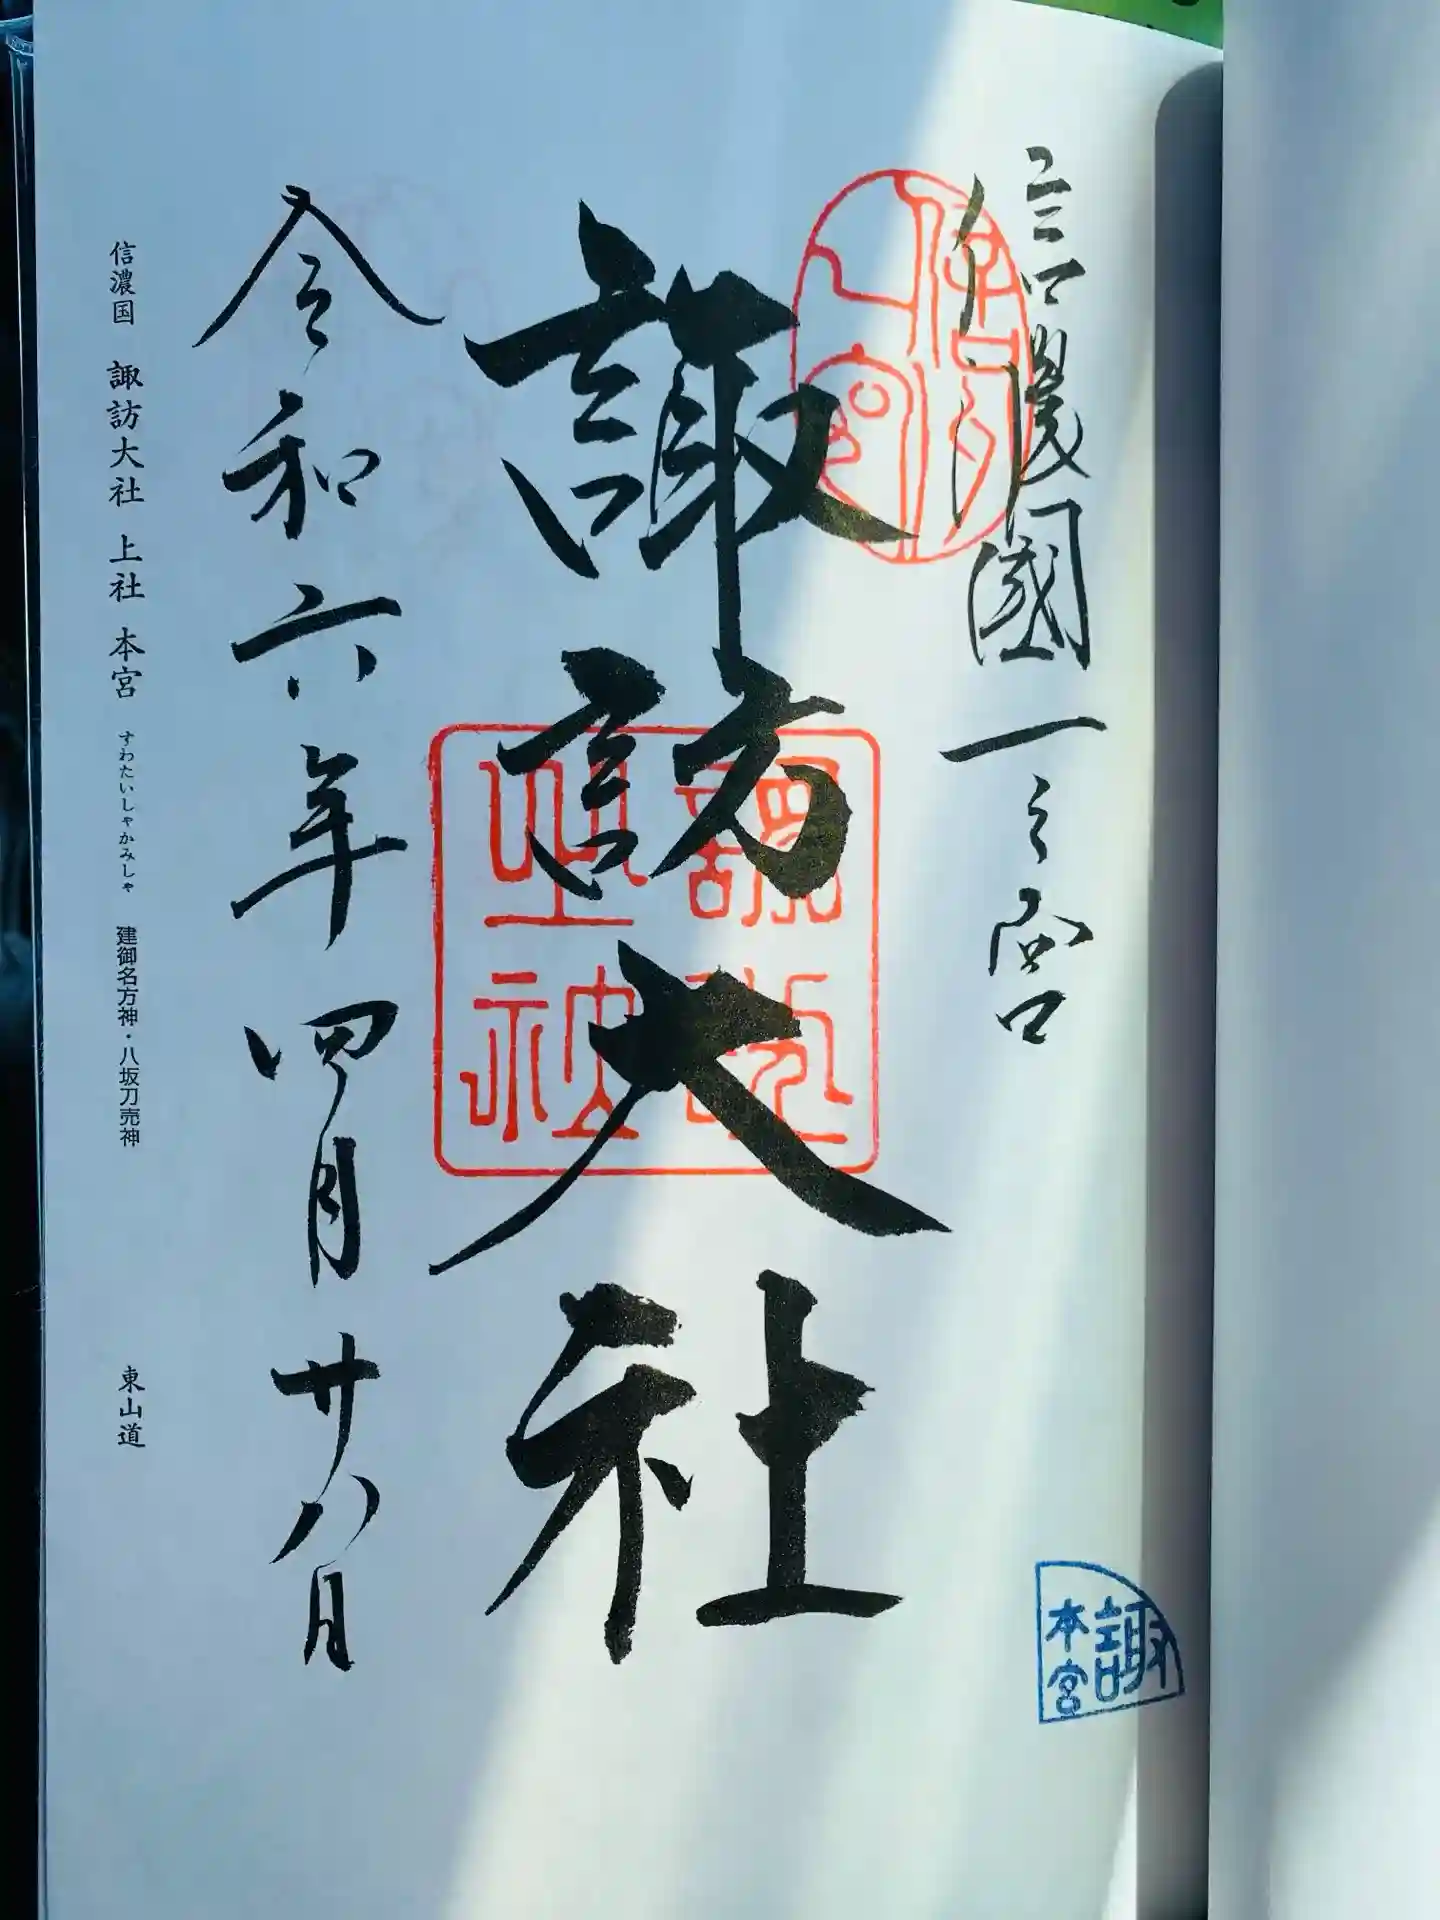 信濃國一之宮
諏訪大社
令和六年四月廿八日
信濃国 諏訪大社 上社 本宮 すわたいしゃかみしゃ 建御名方神・八坂刀売神 東山道
諏
本宮